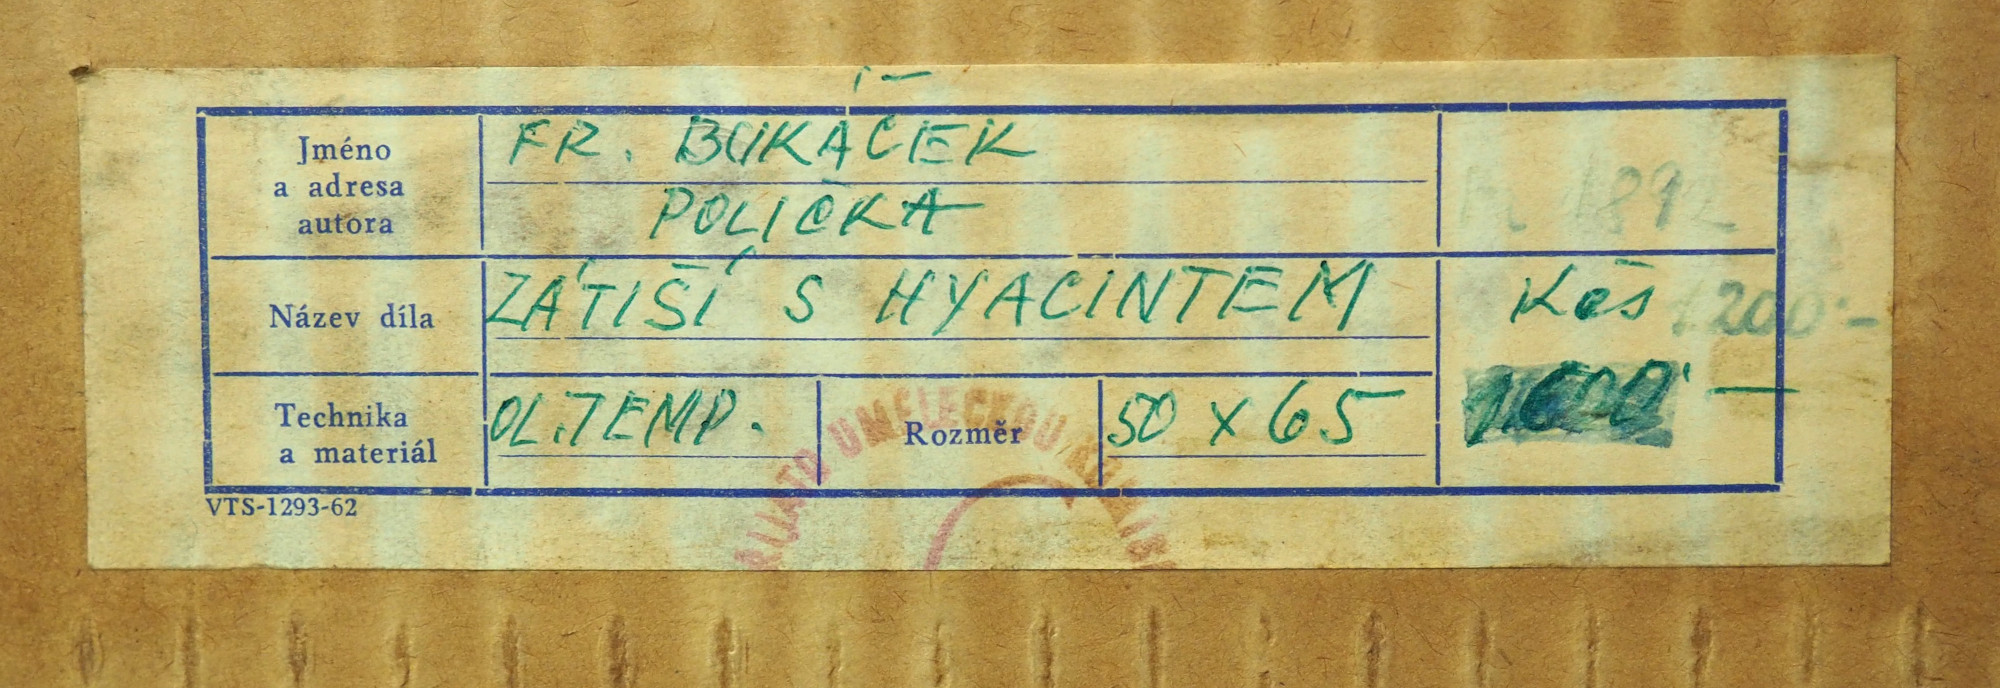 Jméno
a adresa
autora
FR. BUKÁČEK
POLIČKA
Název díla
ZÁTIŠÍ S HYACINTEM
Kčs 1200·-
1.600·—
Technika
a materiál
OL.TEMP.
Rozměr
50 x 65
VTS-1293-62
1892
UMĚLECKOU